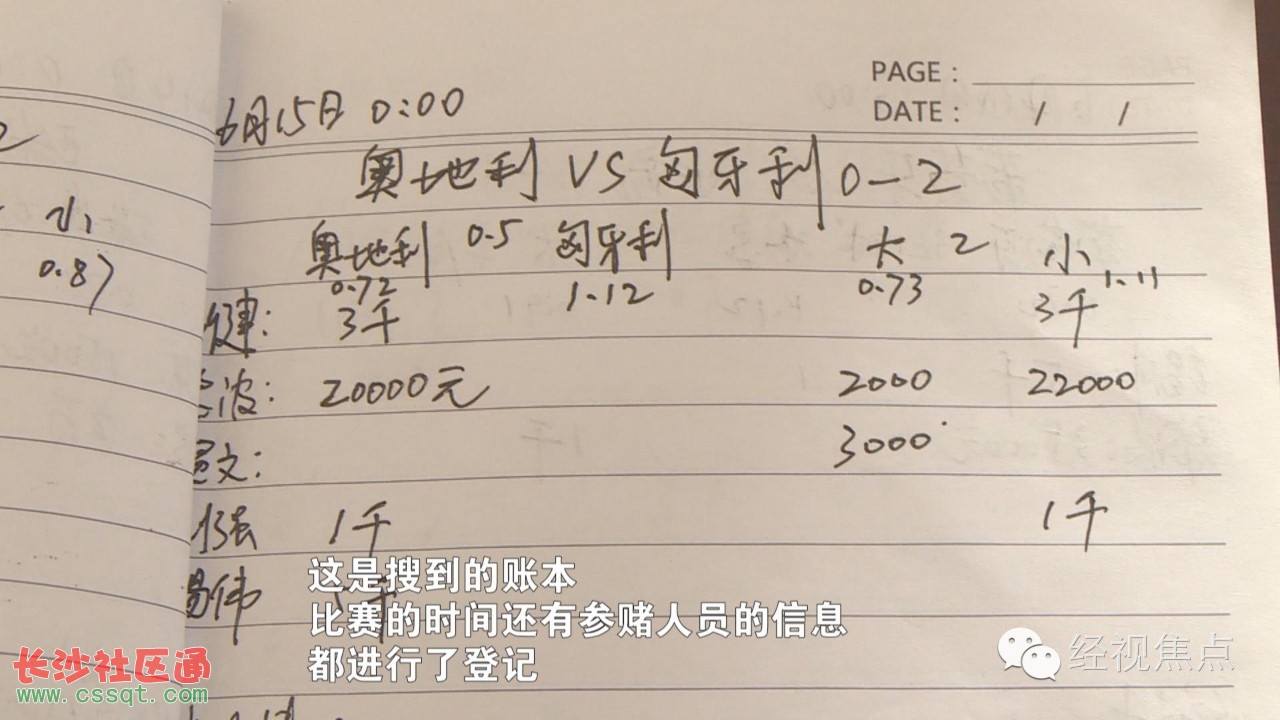 PAGE：
DATE： / /
6月15日 0:00
奥地利 VS 匈牙利 0-2
小
奥地利 0.5 匈牙利 大 2 小
0.87
0.72 1.12 0.73 1.11
健: 3千 3千
波: 20000元 2000 22000
文: 3000
强 1千 1千
伟
这是搜到的账本
比赛的时间还有参赌人员的信息
都进行了登记
长沙社区通
www.cssqt.com
经视焦点